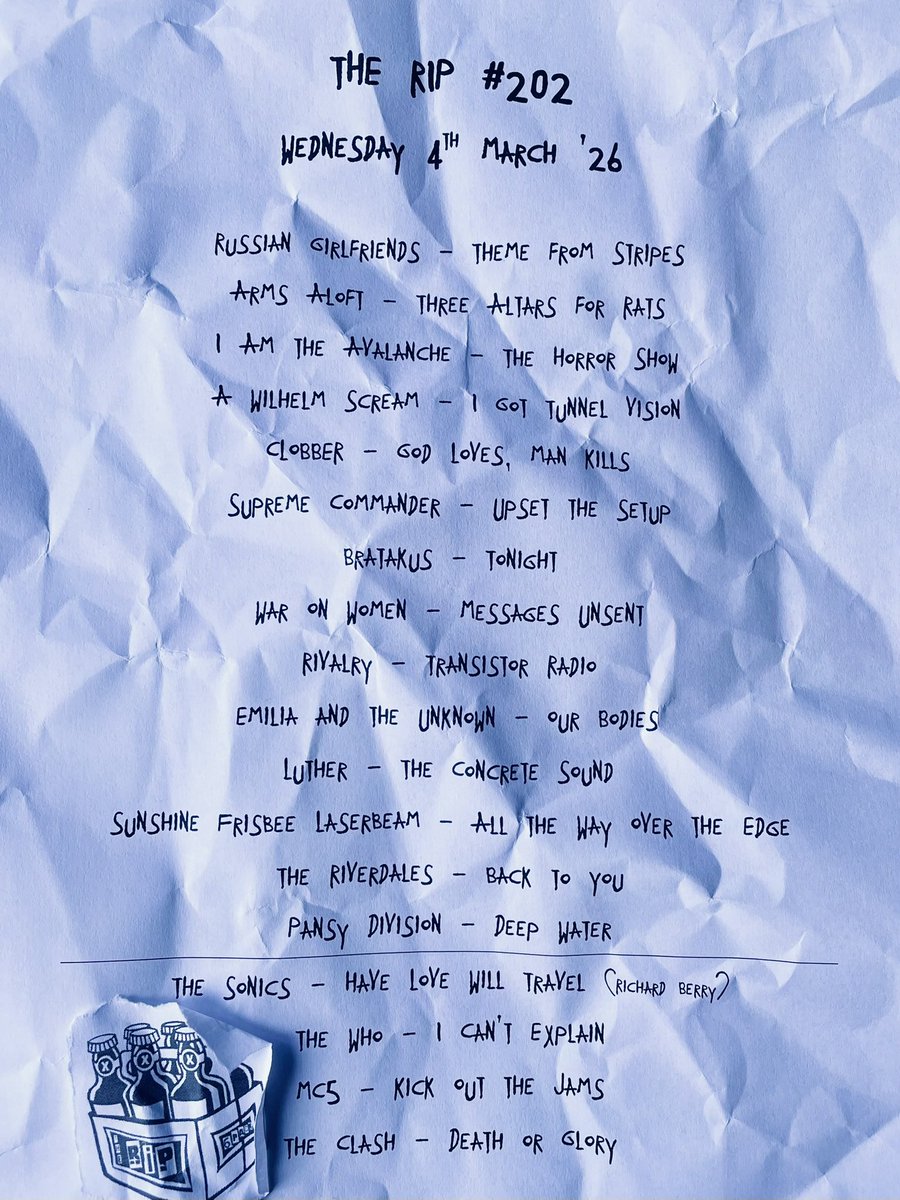 THE RIP #202
WEDNESDAY 4TH MARCH '26
RUSSIAN GIRLFRIENDS – THEME FROM STRIPES
ARMS ALOFT – THREE ALTARS FOR RATS
I AM THE AVALANCHE – THE HORROR SHOW
A WILHELM SCREAM – I GOT TUNNEL VISION
CLOBBER – GOD LOVES, MAN KILLS
SUPREME COMMANDER – UPSET THE SETUP
BRATAKUS – TONIGHT
WAR ON WOMEN – MESSAGES UNSENT
RIVALRY – TRANSISTOR RADIO
EMILIA AND THE UNKNOWN – OUR BODIES
LUTHER – THE CONCRETE SOUND
SUNSHINE FRISBEE LASERBEAM – ALL THE WAY OVER THE EDGE
THE RIVERDALES – BACK TO YOU
PANSY DIVISION – DEEP WATER
THE SONICS – HAVE LOVE WILL TRAVEL (RICHARD BERRY)
THE WHO – I CAN'T EXPLAIN
MC5 – KICK OUT THE JAMS
THE CLASH – DEATH OR GLORY
X X X
RIP